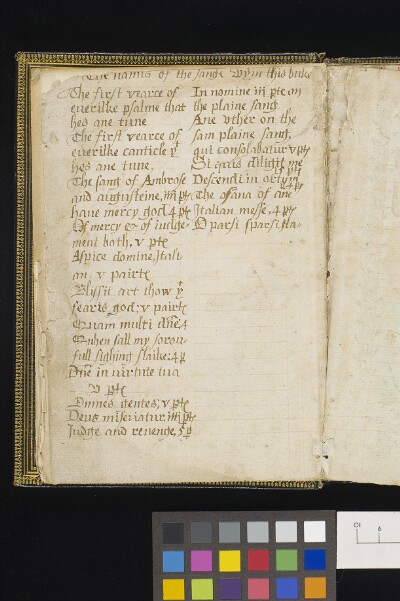 The names of the sangs within this buke
The first vearce of
euerilke psalme that
hes ane tune
The first vearce of
euerilke canticle yt
hes ane tune,
The sang of Ambrose
and augusteine, iiij ptx
haue mercy god 4 ptx
Of mercy & of iudge-
ment both, v ptx
Aspice domine, Itali
an v pairtx
Blyssit art thow yt
fearis god; v pairtx
Quam multi dñe, 4
Quhen sall my sorou
full sighing slaike; 4 p
Dñe in uirtute tua
v ptx
Omnes gentes; v ptx
Deus miseriatur, iiij ptx
Judge and revenge, 5 p
In nomine iiij ptx on
the plaine sang
Ane vther on the
sam plaine sang,
qui consolabatur v ptx
Si quis diligit me
v ptx
Descendi in ortum
4 ptx
The osana of ane
Italian messe, 4 ptx
O parsi sparsi sla-